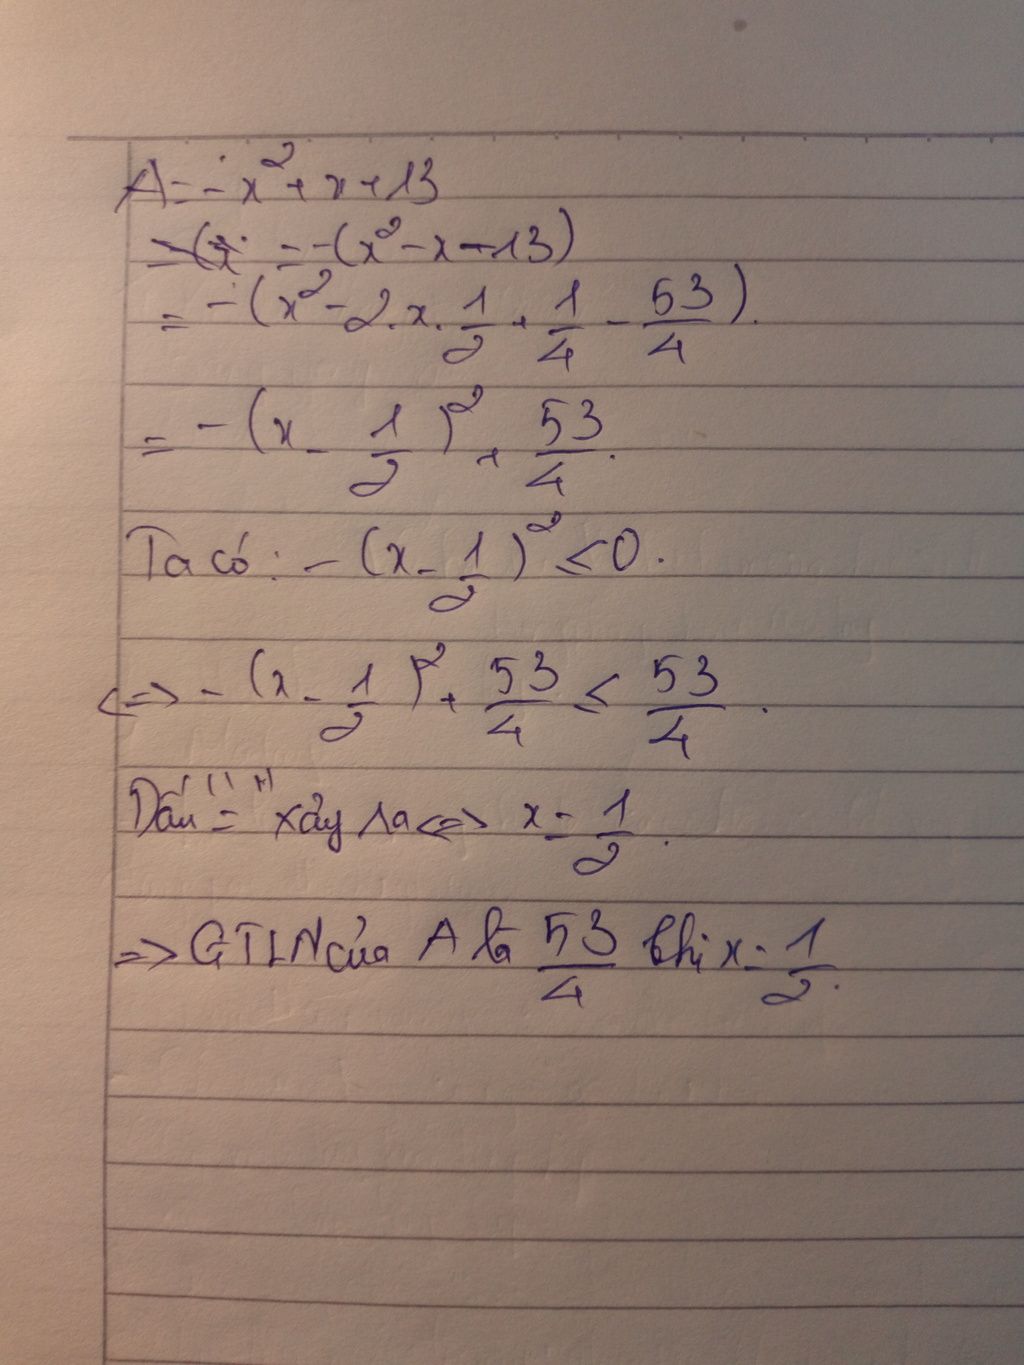 A = -x² + x + 13
= -(x² - x - 13)
= -(x² - 2.x.1/2 + 1/4 - 53/4).
= -(x - 1/2)² + 53/4.
Ta có: -(x - 1/2)² ≤ 0.
<=> -(x - 1/2)² + 53/4 ≤ 53/4.
Dấu "=" xảy ra <=> x = 1/2.
=> GTLN của A là 53/4 khi x = 1/2.